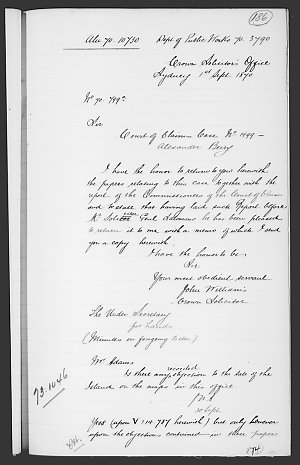 186
Alie 70. 10730 Dept of Public Works 70. 3790
Crown Solicitor's Office
Sydney 1st Sept. 1870
No 70. 799
Sir
Court of Claims Case No 1199 -
Alexander Berry
I have the honor to return to you herewith
the papers relating to this case together with the
report of the Commissioners of the Court of Claims
and to state that having laid such Report before
the Solicitor Genl he has been pleased
to return it to me with a memo of which I send
you a copy herewith.
I have the honor to be
Sir
Your most obedient servant
John Williams
Crown Solicitor
The Under Secretary
for Lands
(Minutes on foregoing letter)
Mr Adams
Is there any recorded objection to the sale of the
Island on the maps in this office
73.1046
Yes (upon V 314 787 herewith) but only however
upon the objection contained in these papers